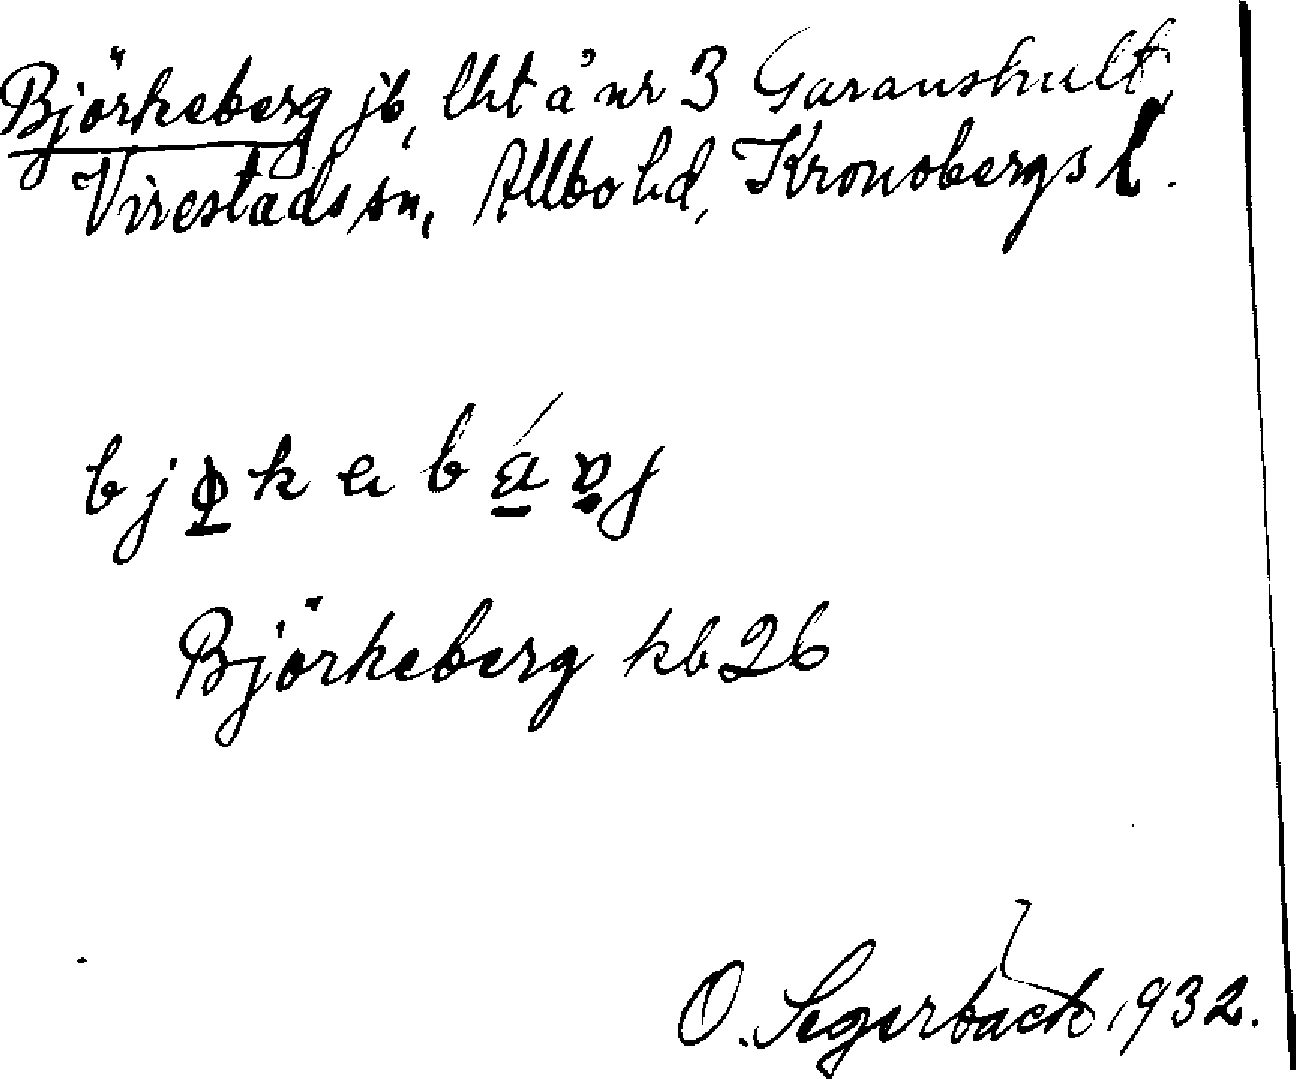 Björkeberg jb, lht å nr 3 Garanshult,
Virestads sn, Allbo hd, Kronobergs l.
Björkeberg kb 26
O. Segerbäck 1932.